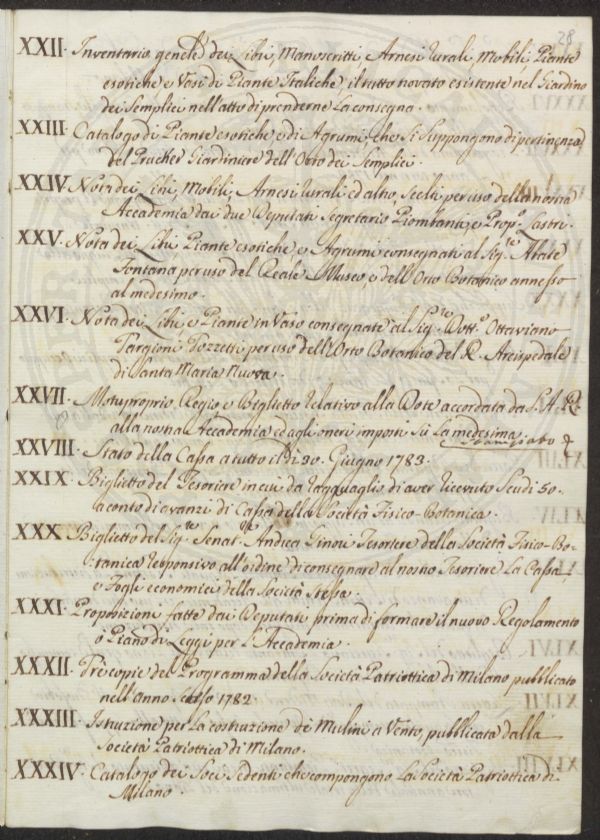 28
XXII. Inventario genele. dei Libri, Manoscritti, Arnesi rurali, Mobili, Piante
esotiche e Vasi di Piante Italiche, il tutto trovato esistente nel Giardino
dei Semplici nell'atto di prenderne la consegna.
XXIII. Catalogo di Piante esotiche e di Agrumi, che si suppongono di pertinenza
del Prucker Giardiniere dell'Orto dei Semplici.
XXIV. Nota dei Libri, Mobili, Arnesi rurali ed altro, scelti per uso della nostra
Accademia dai due Deputati Segretario Piombanti, e Propo. Lastri.
XXV. Nota dei Libri, Piante esotiche, e Agrumi consegnati al Sigre. Abate
Fontana per uso del Reale Museo e dell'Orto Botanico annesso
al medesimo.
XXVI. Nota dei Libri e Piante in Vaso consegnate al Sigre. Dotto. Ottaviano
Targioni Tozzetti per uso dell'Orto Botanico del R. Arcispedale
di Santa Maria Nuova.
XXVII. Motuproprio Regio e Biglietto relativo alla Dote accordata da S. A. R.
alla nostra Accademia e agli oneri imposti su la medesima
XXVIII. Stato della Cassa a tutto il dì 30. Giugno 1783.
XXIX. Biglietto del Tesoriere in cui da ragguaglio di aver ricevuto Scudi 50.
a conto di avanzi di Cassa della Società Fisico-Botanica.
XXX. Biglietto del Sigre. Senat. Andrea Ginori Tesoriere della Società Fisico-Bo-
tanica responsivo all'ordine di consegnare al nostro Tesoriere la Cassa
e Fogli economici della Società stessa.
XXXI. Proposizioni fatte dai Deputati prima di formare il nuovo Regolamento
o Piano di Leggi per l'Accademia.
XXXII. Trè copie del Programma della Società Patriottica di Milano pubblicato
nell'anno 1782.
XXXIII. Istruzione per la costruzione de Mulini a Vento, pubblicata dalla
Società Patriottica di Milano.
XXXIV. Catalogo dei Soci Sedenti che compongono la Società Patriottica di
Milano.